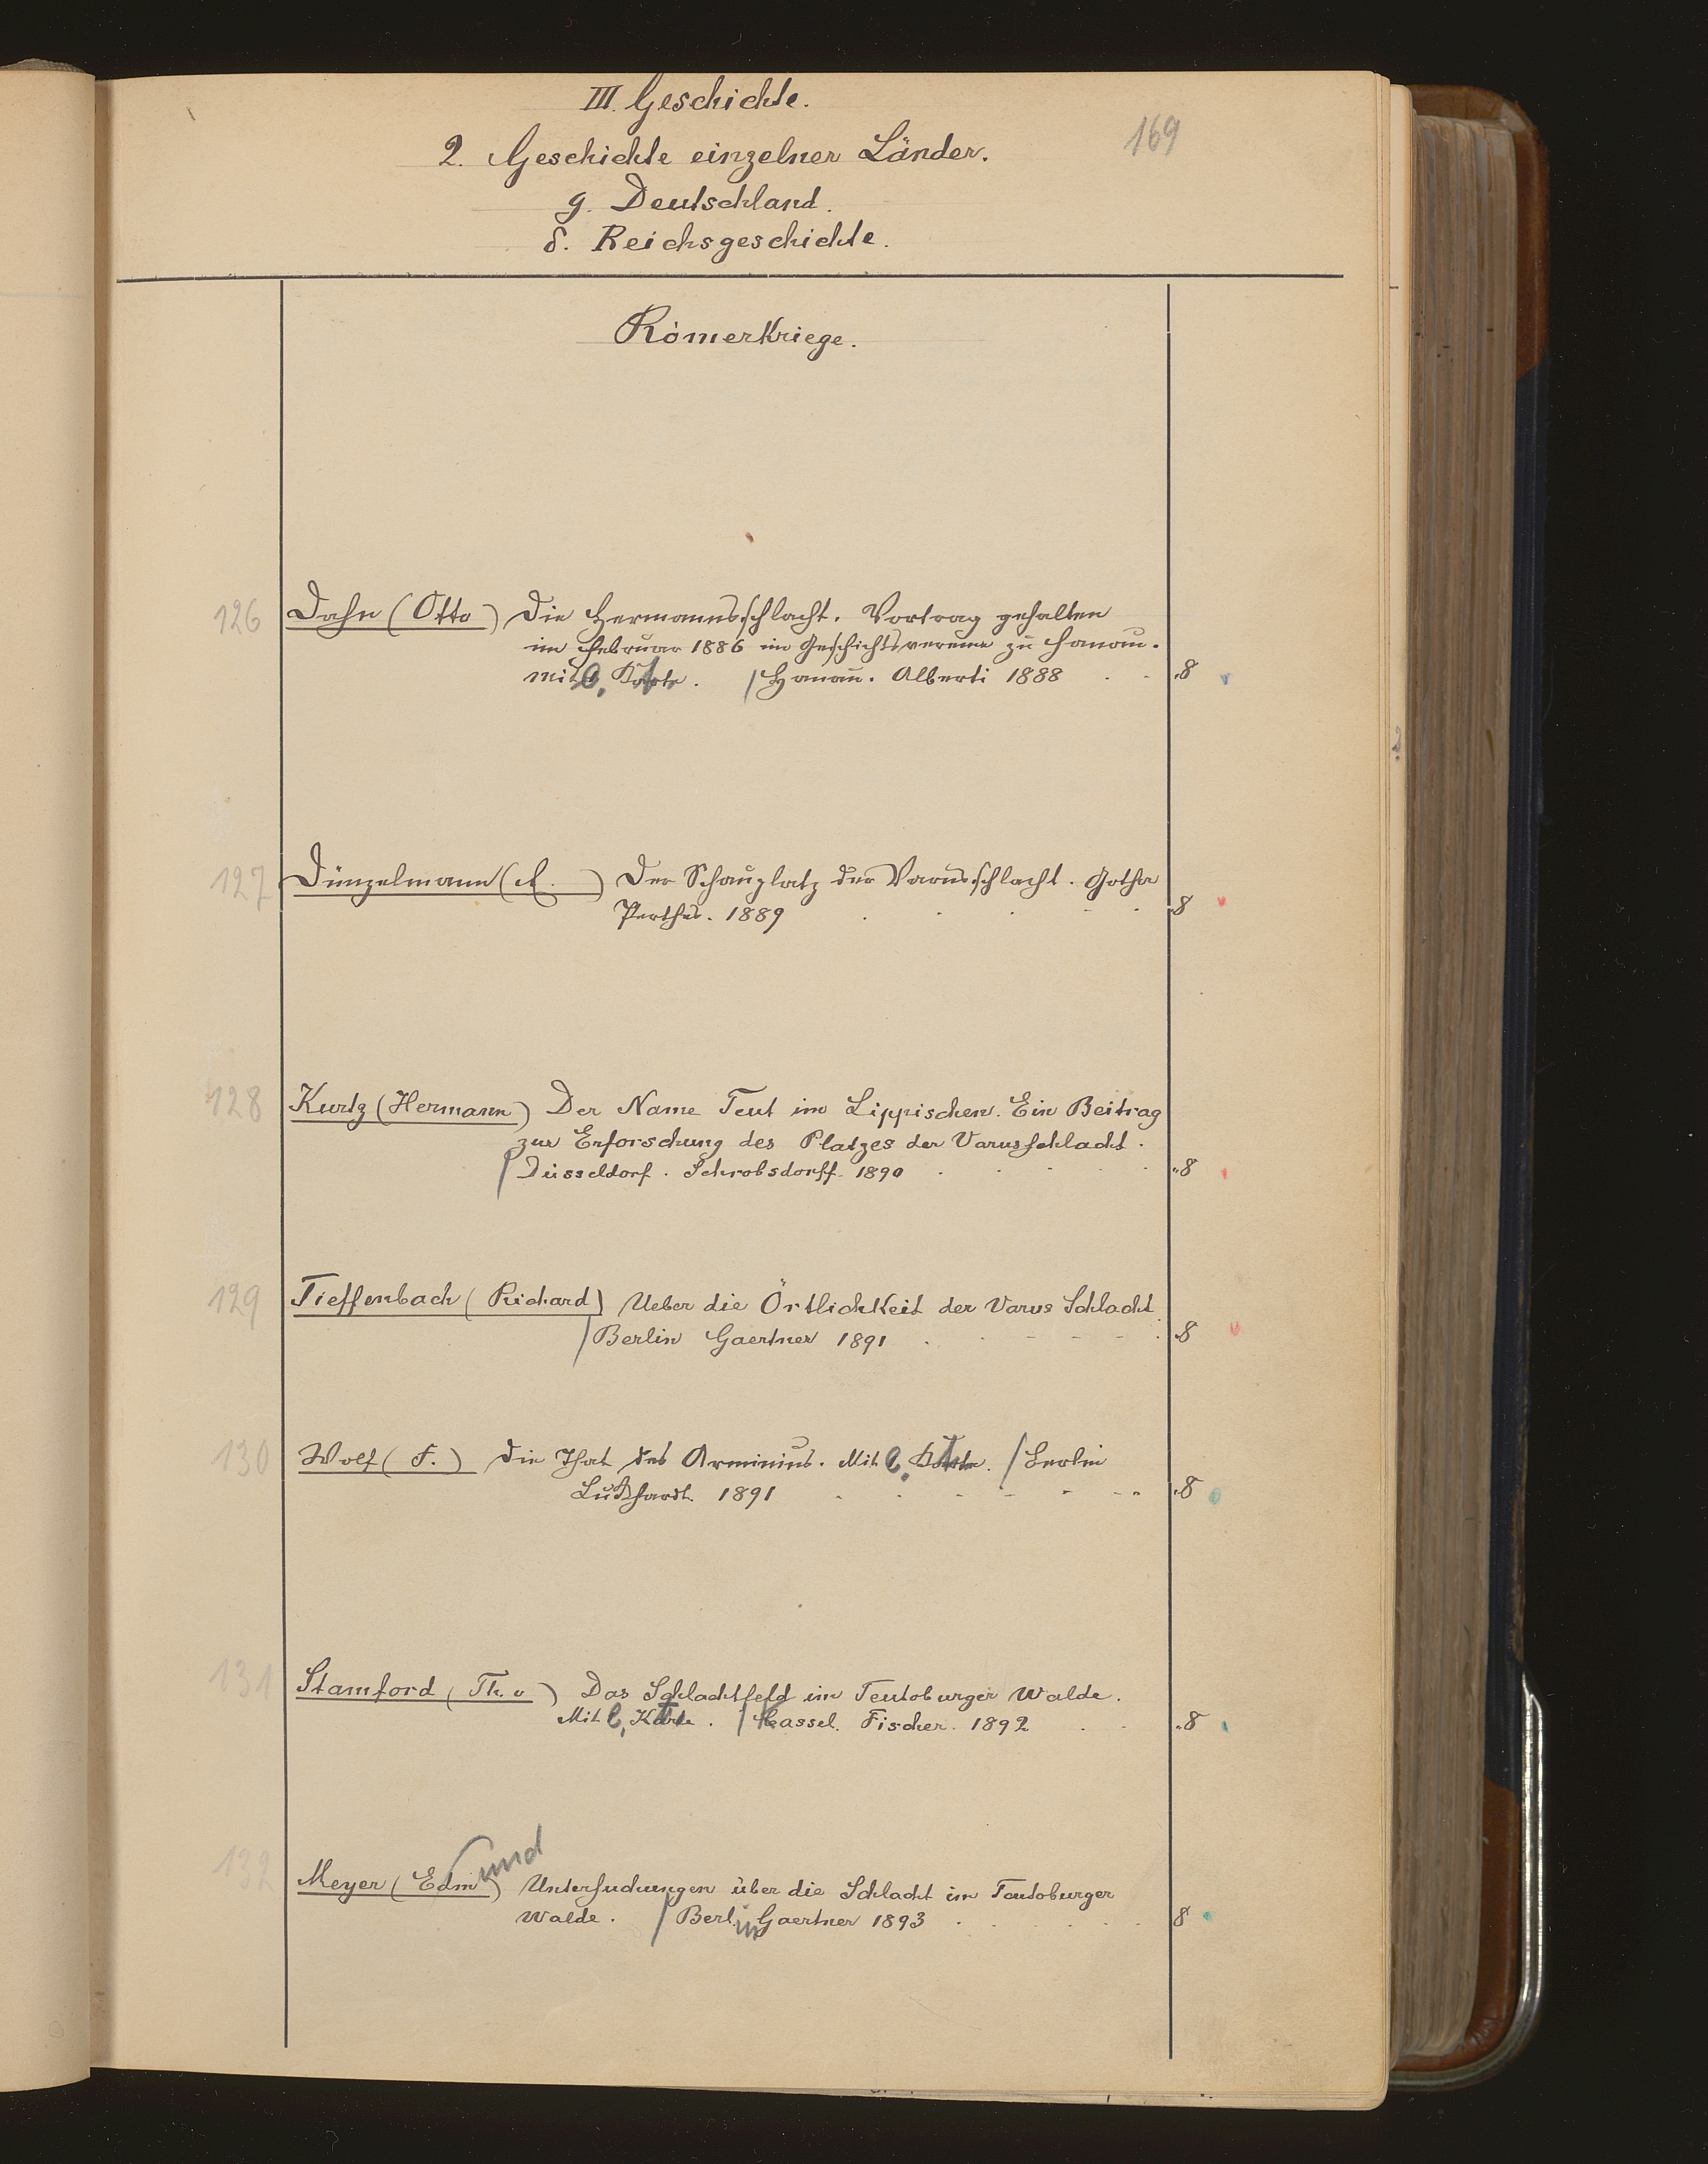 III. Geschichte.
169
2. Geschichte einzelner Länder.
g. Deutschland.
δ. Reichsgeschichte.
Römerkriege.
126 Dahn (Otto) Die Hermannsschlacht. Vortrag gehalten
im Februar 1886 im Geschichtsvereine zu Hanau.
Mit e. Karte. / Hanau. Alberti 1888 8
127 Dünzelmann (E.) Der Schauplatz der Varusschlacht. Gotha
Perthes. 1889 8
128 Kurtz (Hermann) Der Name Teut im Lippischen. Ein Beitrag
zur Erforschung des Platzes der Varusschlacht.
/ Düsseldorf. Schrobsdorff. 1890 8
129 Tieffenbach (Richard) Ueber die Örtlichkeit der Varus Schlacht
/ Berlin Gaertner 1891 8
130 Wolf (F.) Die That des Arminius. Mit e. Karte. / Berlin
Luckhardt. 1891 8
131 Stamford (Th. v) Das Schlachtfeld im Teutoburger Walde.
Mit e. Karte. / Cassel. Fischer. 1892 8
132 Meyer (Edmund) Untersuchungen über die Schlacht im Teutoburger
Walde. / Berlin Gaertner 1893 8